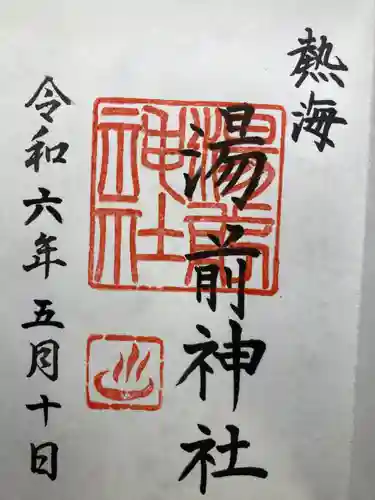 熱海
湯前神社
湯前神社
令和六年五月十日